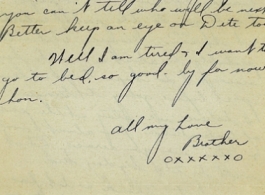 you can't tell who will be next
Better keep an eye on Dete too
Well I am tired, I want t
go to bed, so good-by for now
hon.
all my Love
Brother
oxxxxxo